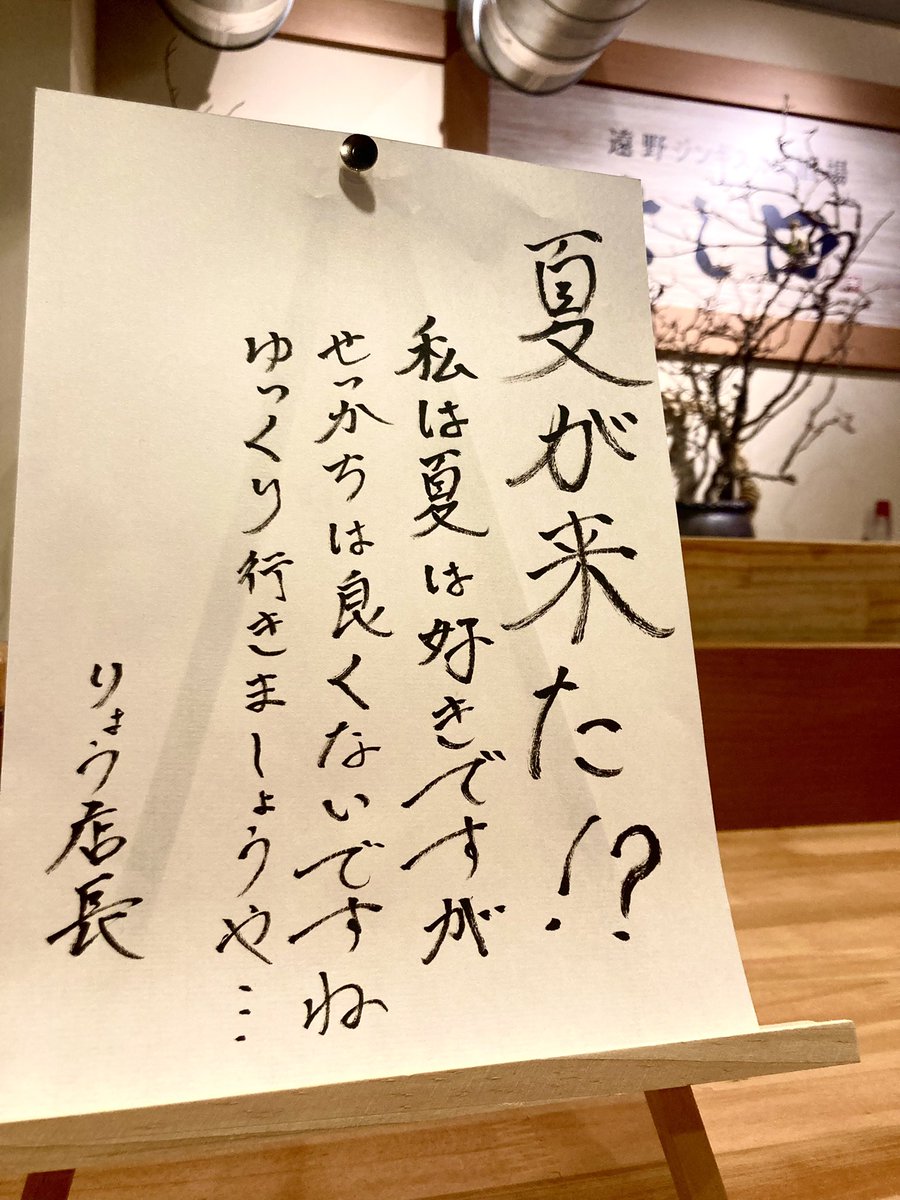 夏が来た!?
私は夏は好きですが
せっかちは良くないですね
ゆっくり行きましょうや…
りょう店長
遠野ジンギス